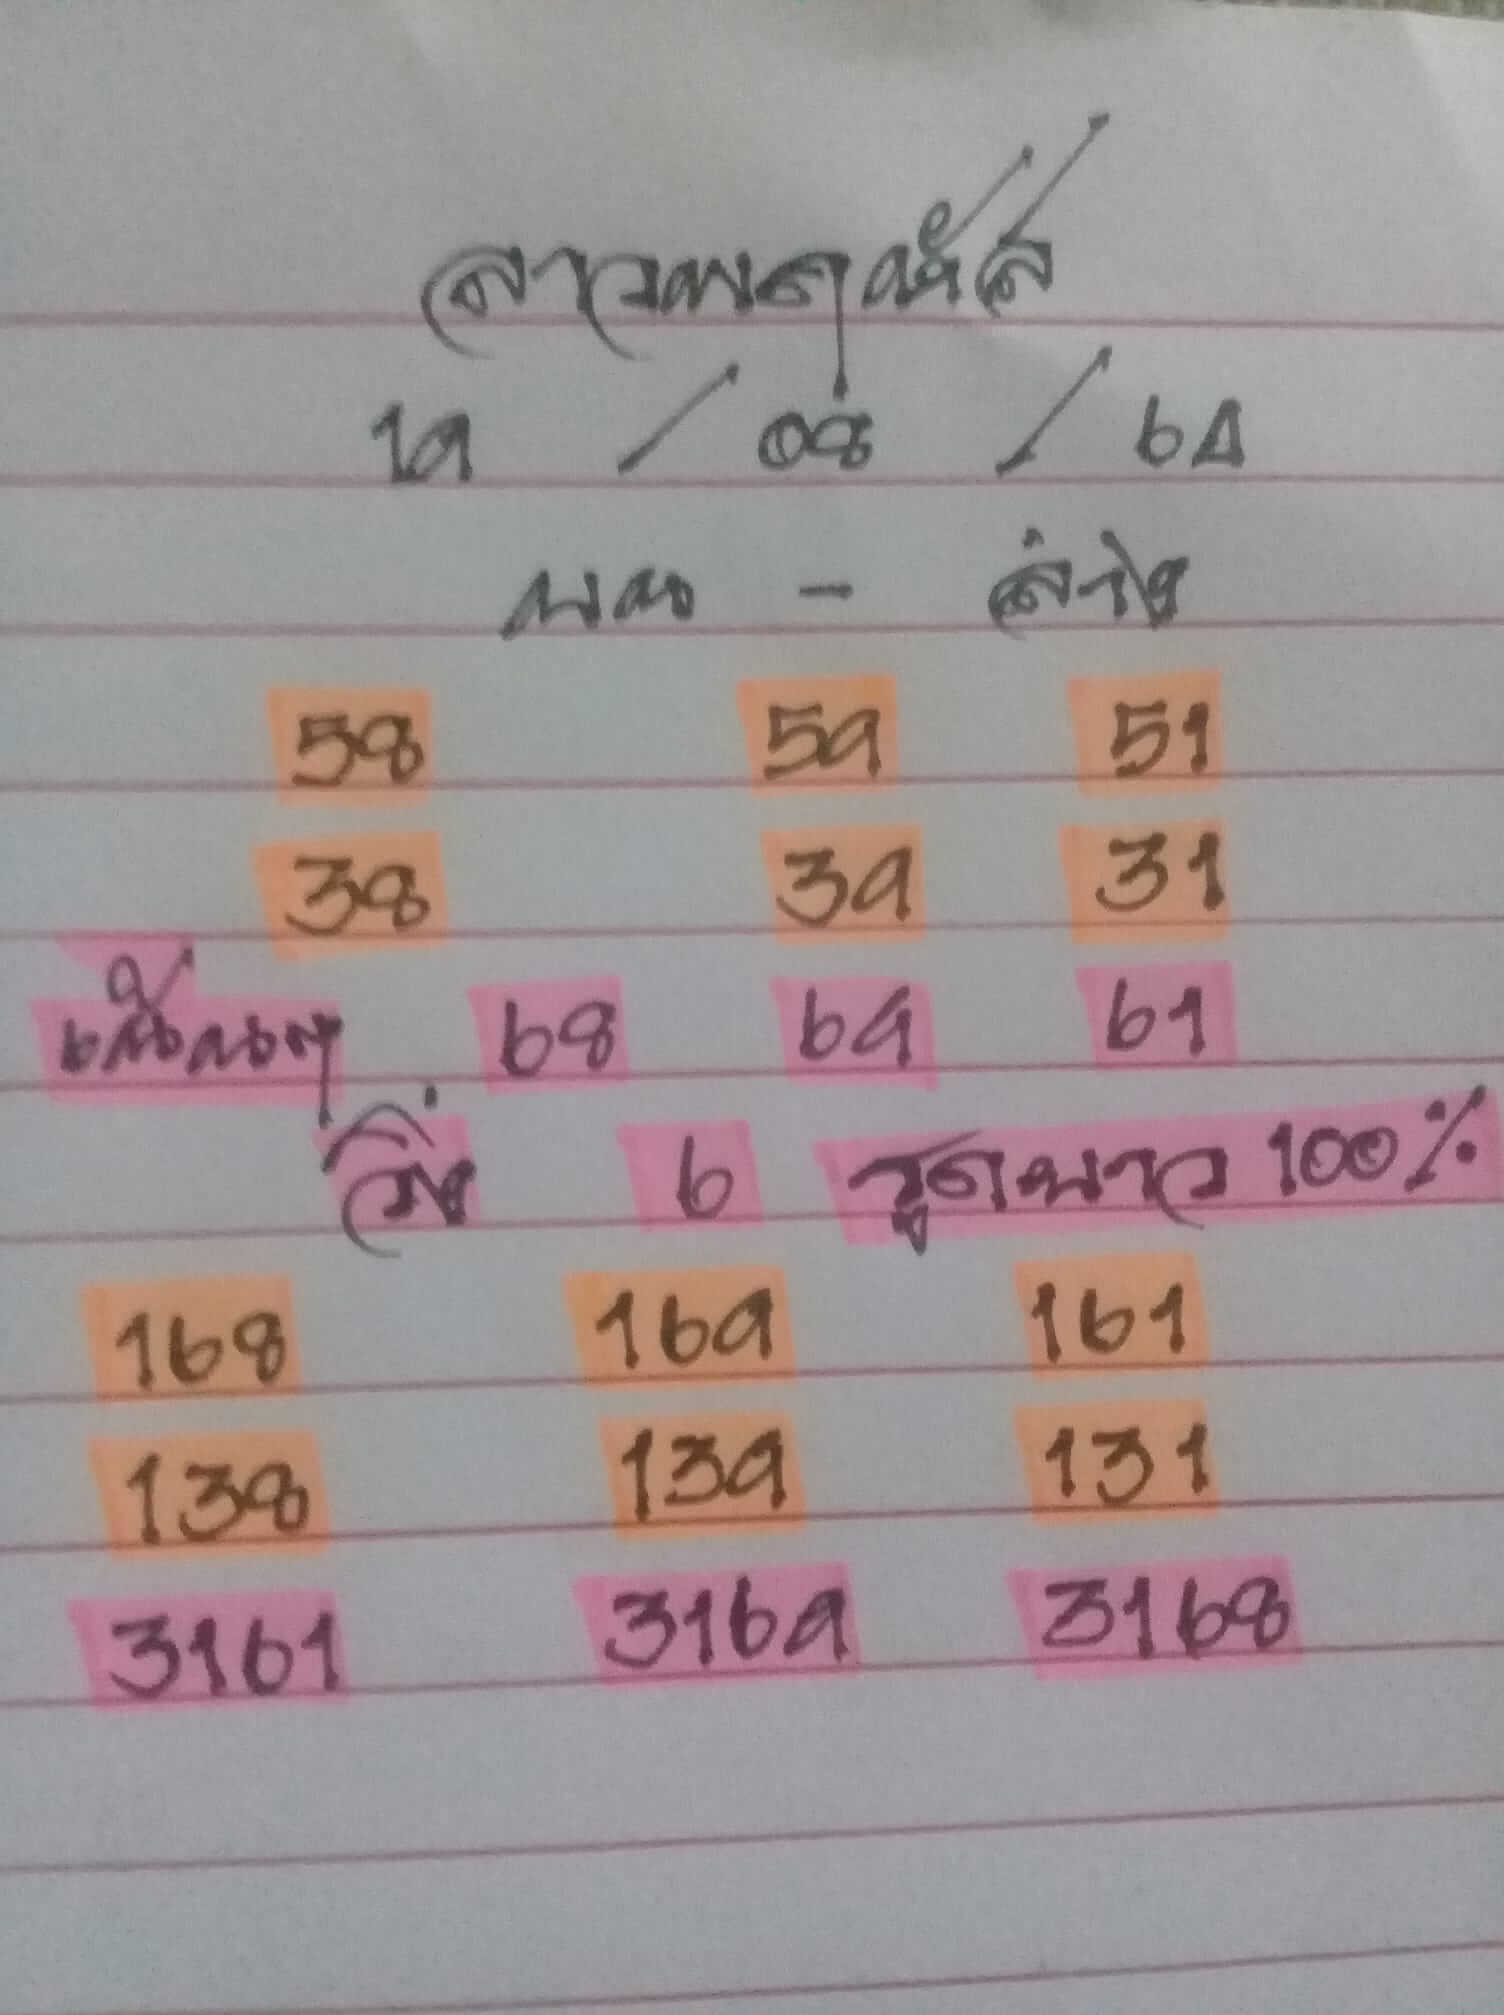 ลาวพฤหัส
19 / 08 / 64
บน - ล่าง
58 59 51
38 39 31
เน้นๆ 68 69 61
วิ่ง 6 รูดยาว 100%
168 169 161
138 139 131
3161 3169 3168